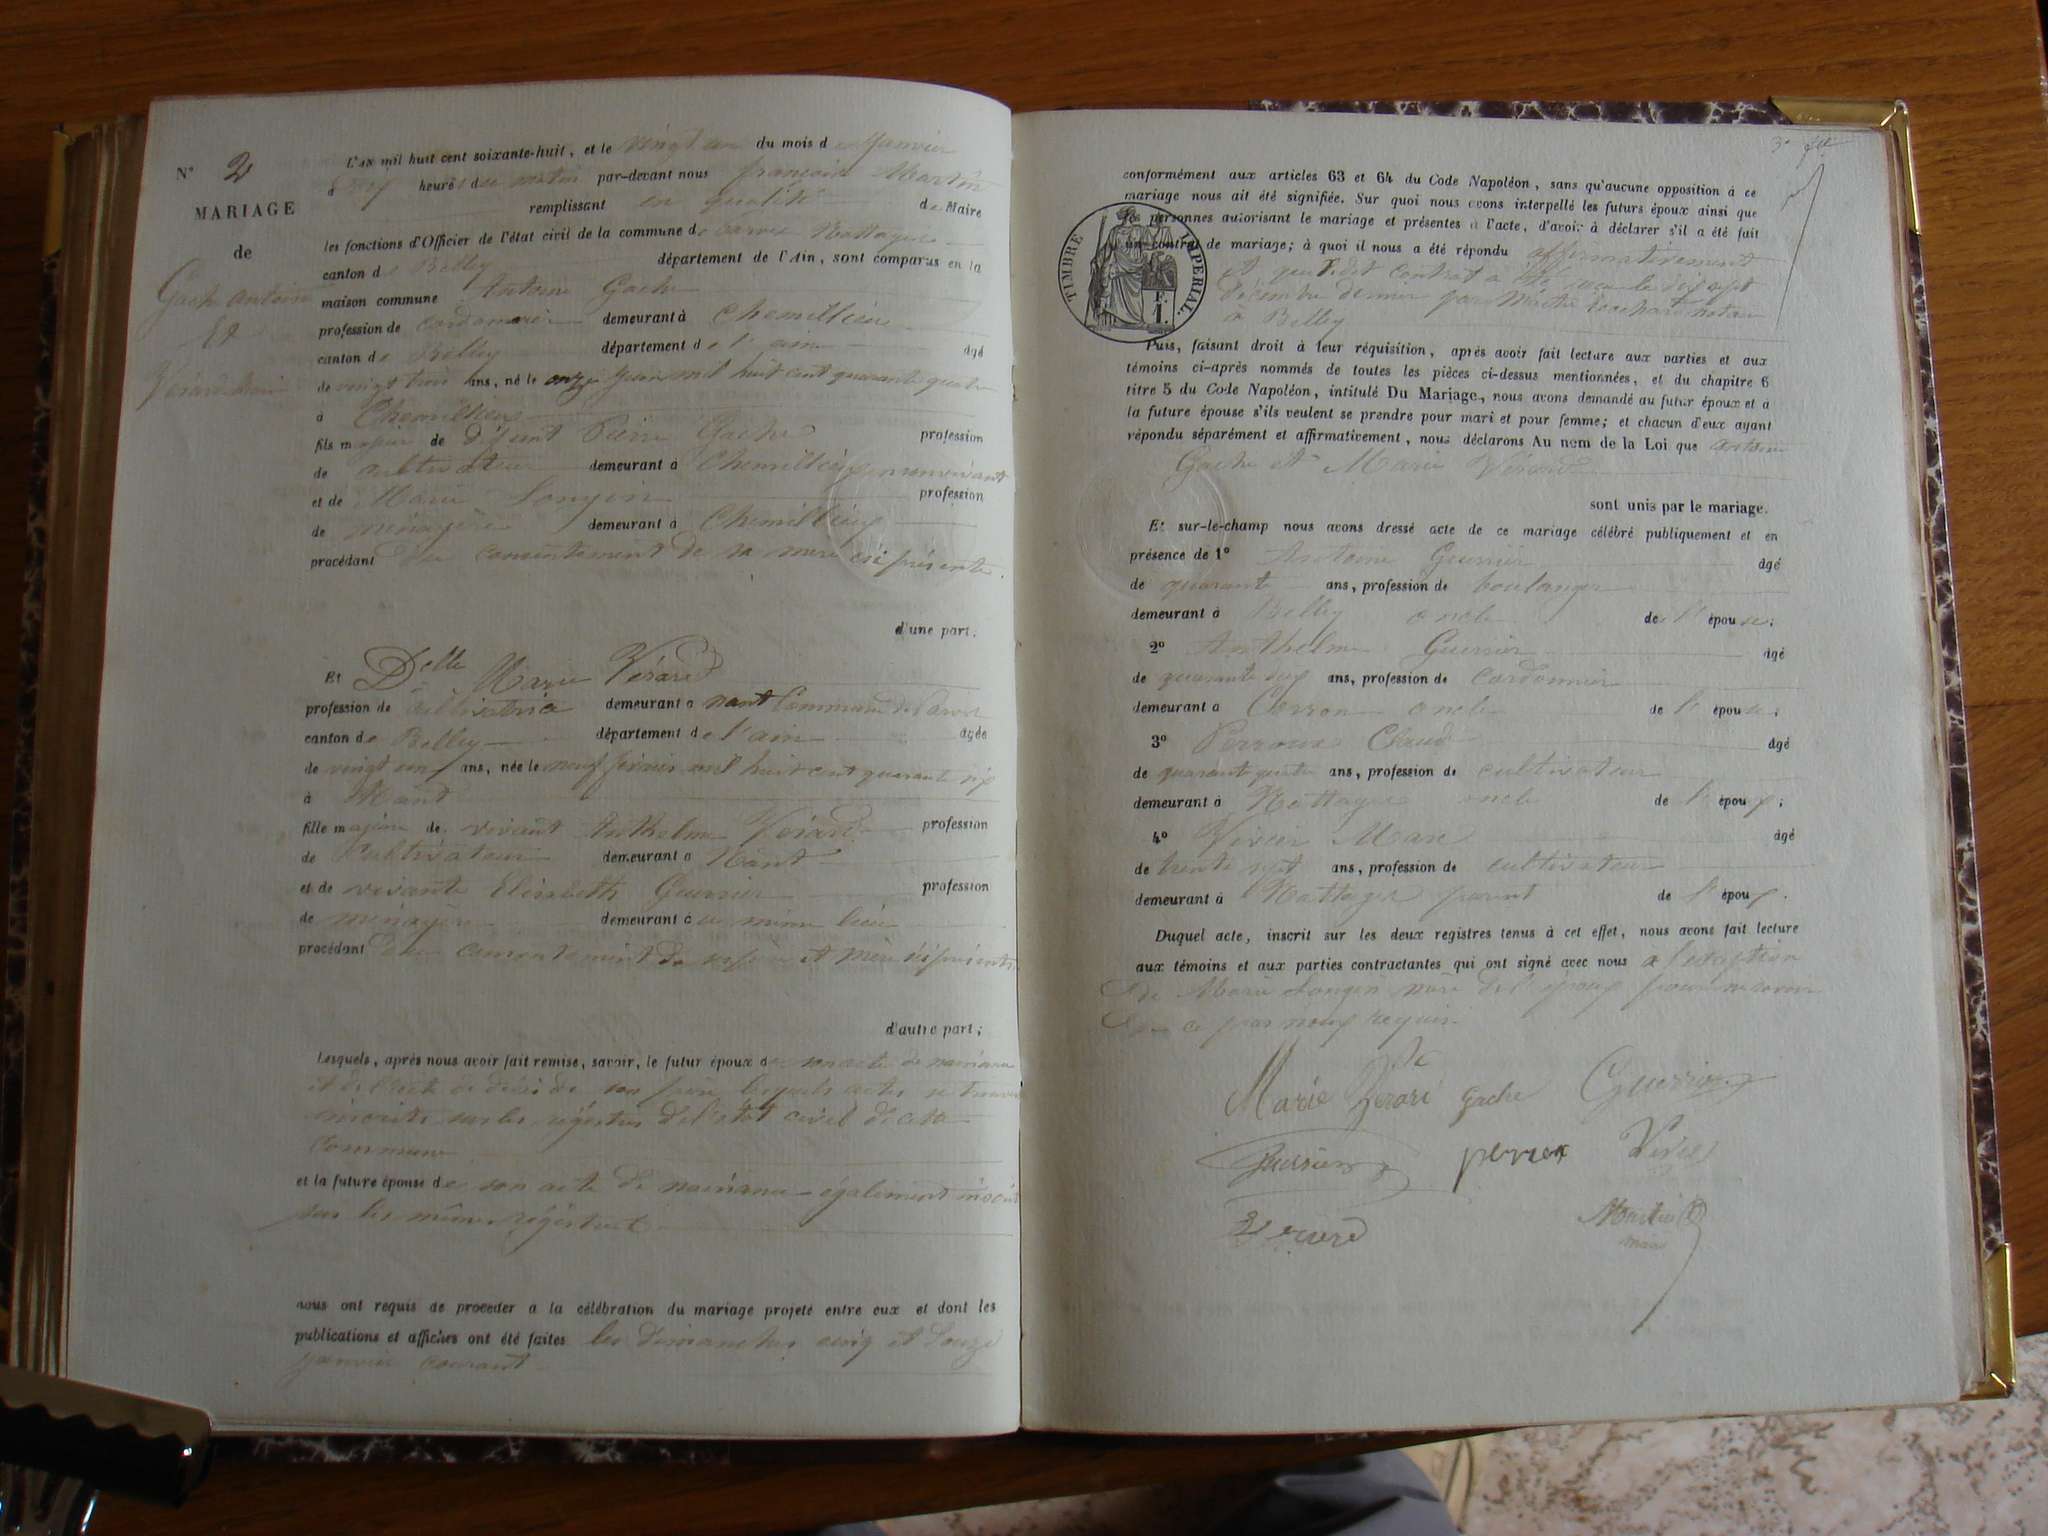 N° 2
MARIAGE
de
Gache Antoine
Et
Vérard Marie
L'an mil huit cent soixante-huit, et le vingt un du mois de Janvier
à dix heures du matin par-devant nous françois Martin
remplissant en qualité de Maire
les fonctions d'Officier de l'état civil de la commune de Parves Nattages
canton de Belley département de l'Ain, sont comparus en la
maison commune Antoine Gache
profession de Cordonnier demeurant à Chemillieu
canton de Belley département de l'ain âgé
de vingt trois ans, né le onze juin mil huit cent quarante quatre
à Chemillieu
fils majeur de défunt Pierre Gache profession
de cultivateur demeurant à Chemillieu
et de Marie Longin profession
de ménagère demeurant à Chemillieu
procédant du consentement de sa mère ici présente.
d'une part.
Et Delle Marie Vérard
profession de cultivatrice demeurant à Nant Commune de Parves
canton de Belley département de l'ain âgée
de vingt un ans, née le neuf février mil huit cent quarante six
à Nant
fille majeure de vivant Anthelme Vérard profession
de Cultivateur demeurant à Nant
et de vivante Elisabeth Guerrier profession
de ménagère demeurant à au même lieu
procédant du consentement de ses père et mère ici présents
d'autre part;
Lesquels, après nous avoir fait remise, savoir, le futur époux de son acte de naissance
et de l'acte de décès de son père lesquels actes se trouvent
inscrits sur les régistres de l'état civil de cette
commune
et la future épouse de son acte de naissance également inscrit
sur les mêmes régistres
nous ont requis de procéder à la célébration du mariage projeté entre eux et dont les
publications et affiches ont été faites les dimanches cinq et douze
janvier courant
3e
conformément aux articles 63 et 64 du Code Napoléon, sans qu'aucune opposition à ce
mariage nous ait été signifiée. Sur quoi nous avons interpellé les futurs époux ainsi que
les personnes autorisant le mariage et présentes à l'acte, d'avoir à déclarer s'il a été fait
un contrat de mariage; à quoi il nous a été répondu affirmativement
et que ledit contrat a été reçu le dix sept
décembre dernier par Maître notaire
à Belley
TIMBRE IMPERIAL
F.
1.
Puis, faisant droit à leur réquisition, après avoir fait lecture aux parties et aux
témoins ci-après nommés de toutes les pièces ci-dessus mentionnées, et du chapitre 6
titre 5 du Code Napoléon, intitulé Du Mariage, nous avons demandé au futur époux et à
la future épouse s'ils veulent se prendre pour mari et pour femme; et chacun d'eux ayant
répondu séparément et affirmativement, nous déclarons Au nom de la Loi que Antoine
Gache et Marie Vérard
sont unis par le mariage.
Et sur-le-champ nous avons dressé acte de ce mariage célébré publiquement et en
présence de 1° Antoine Guerrier âgé
de quarante ans, profession de boulanger
demeurant à Belley oncle de l'épouse;
2° Anthelme Guerrier âgé
de quarante six ans, profession de Cordonnier
demeurant à oncle de l'épouse;
3° Perroux Claude âgé
de quarante quatre ans, profession de cultivateur
demeurant à Nattages oncle de l'époux;
4° Marc âgé
de trente sept ans, profession de cultivateur
demeurant à Nattages parent de l'époux.
Duquel acte, inscrit sur les deux registres tenus à cet effet, nous avons fait lecture
aux témoins et aux parties contractantes qui ont signé avec nous à l'exception
de Marie Longin mère de l'époux pour ne savoir
de ce par nous requis
Marie Vérard Gache Guerrier
Guerrier perroux
Vérard Martin
maire